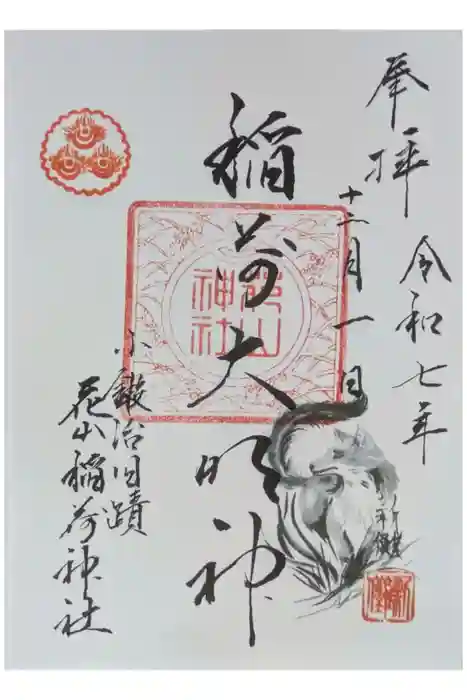 奉拝
令和七年
十二月一日
稲荷大明神
花山
神社
小鍛冶旧蹟
花山稲荷神社